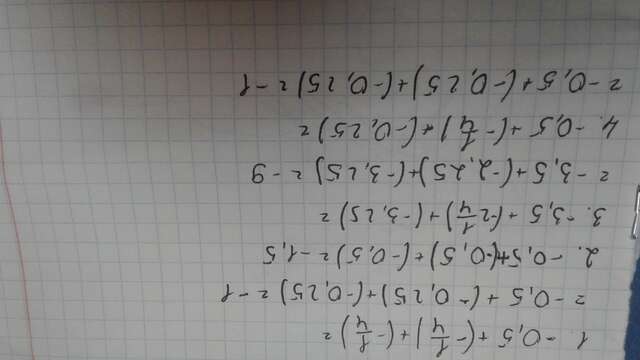 1. -0,5 + (-1/4) + (-1/4) =
= -0,5 + (-0,25) + (-0,25) = -1
2. -0,5+(-0,5) + (-0,5) = -1,5
3. -3,5 + (-2 1/4) + (-3,25) =
= -3,5 + (-2,25) + (-3,25) = -9
4. -0,5 + (-1/4) + (-0,25) =
= -0,5 + (-0,25) + (-0,25) = -1